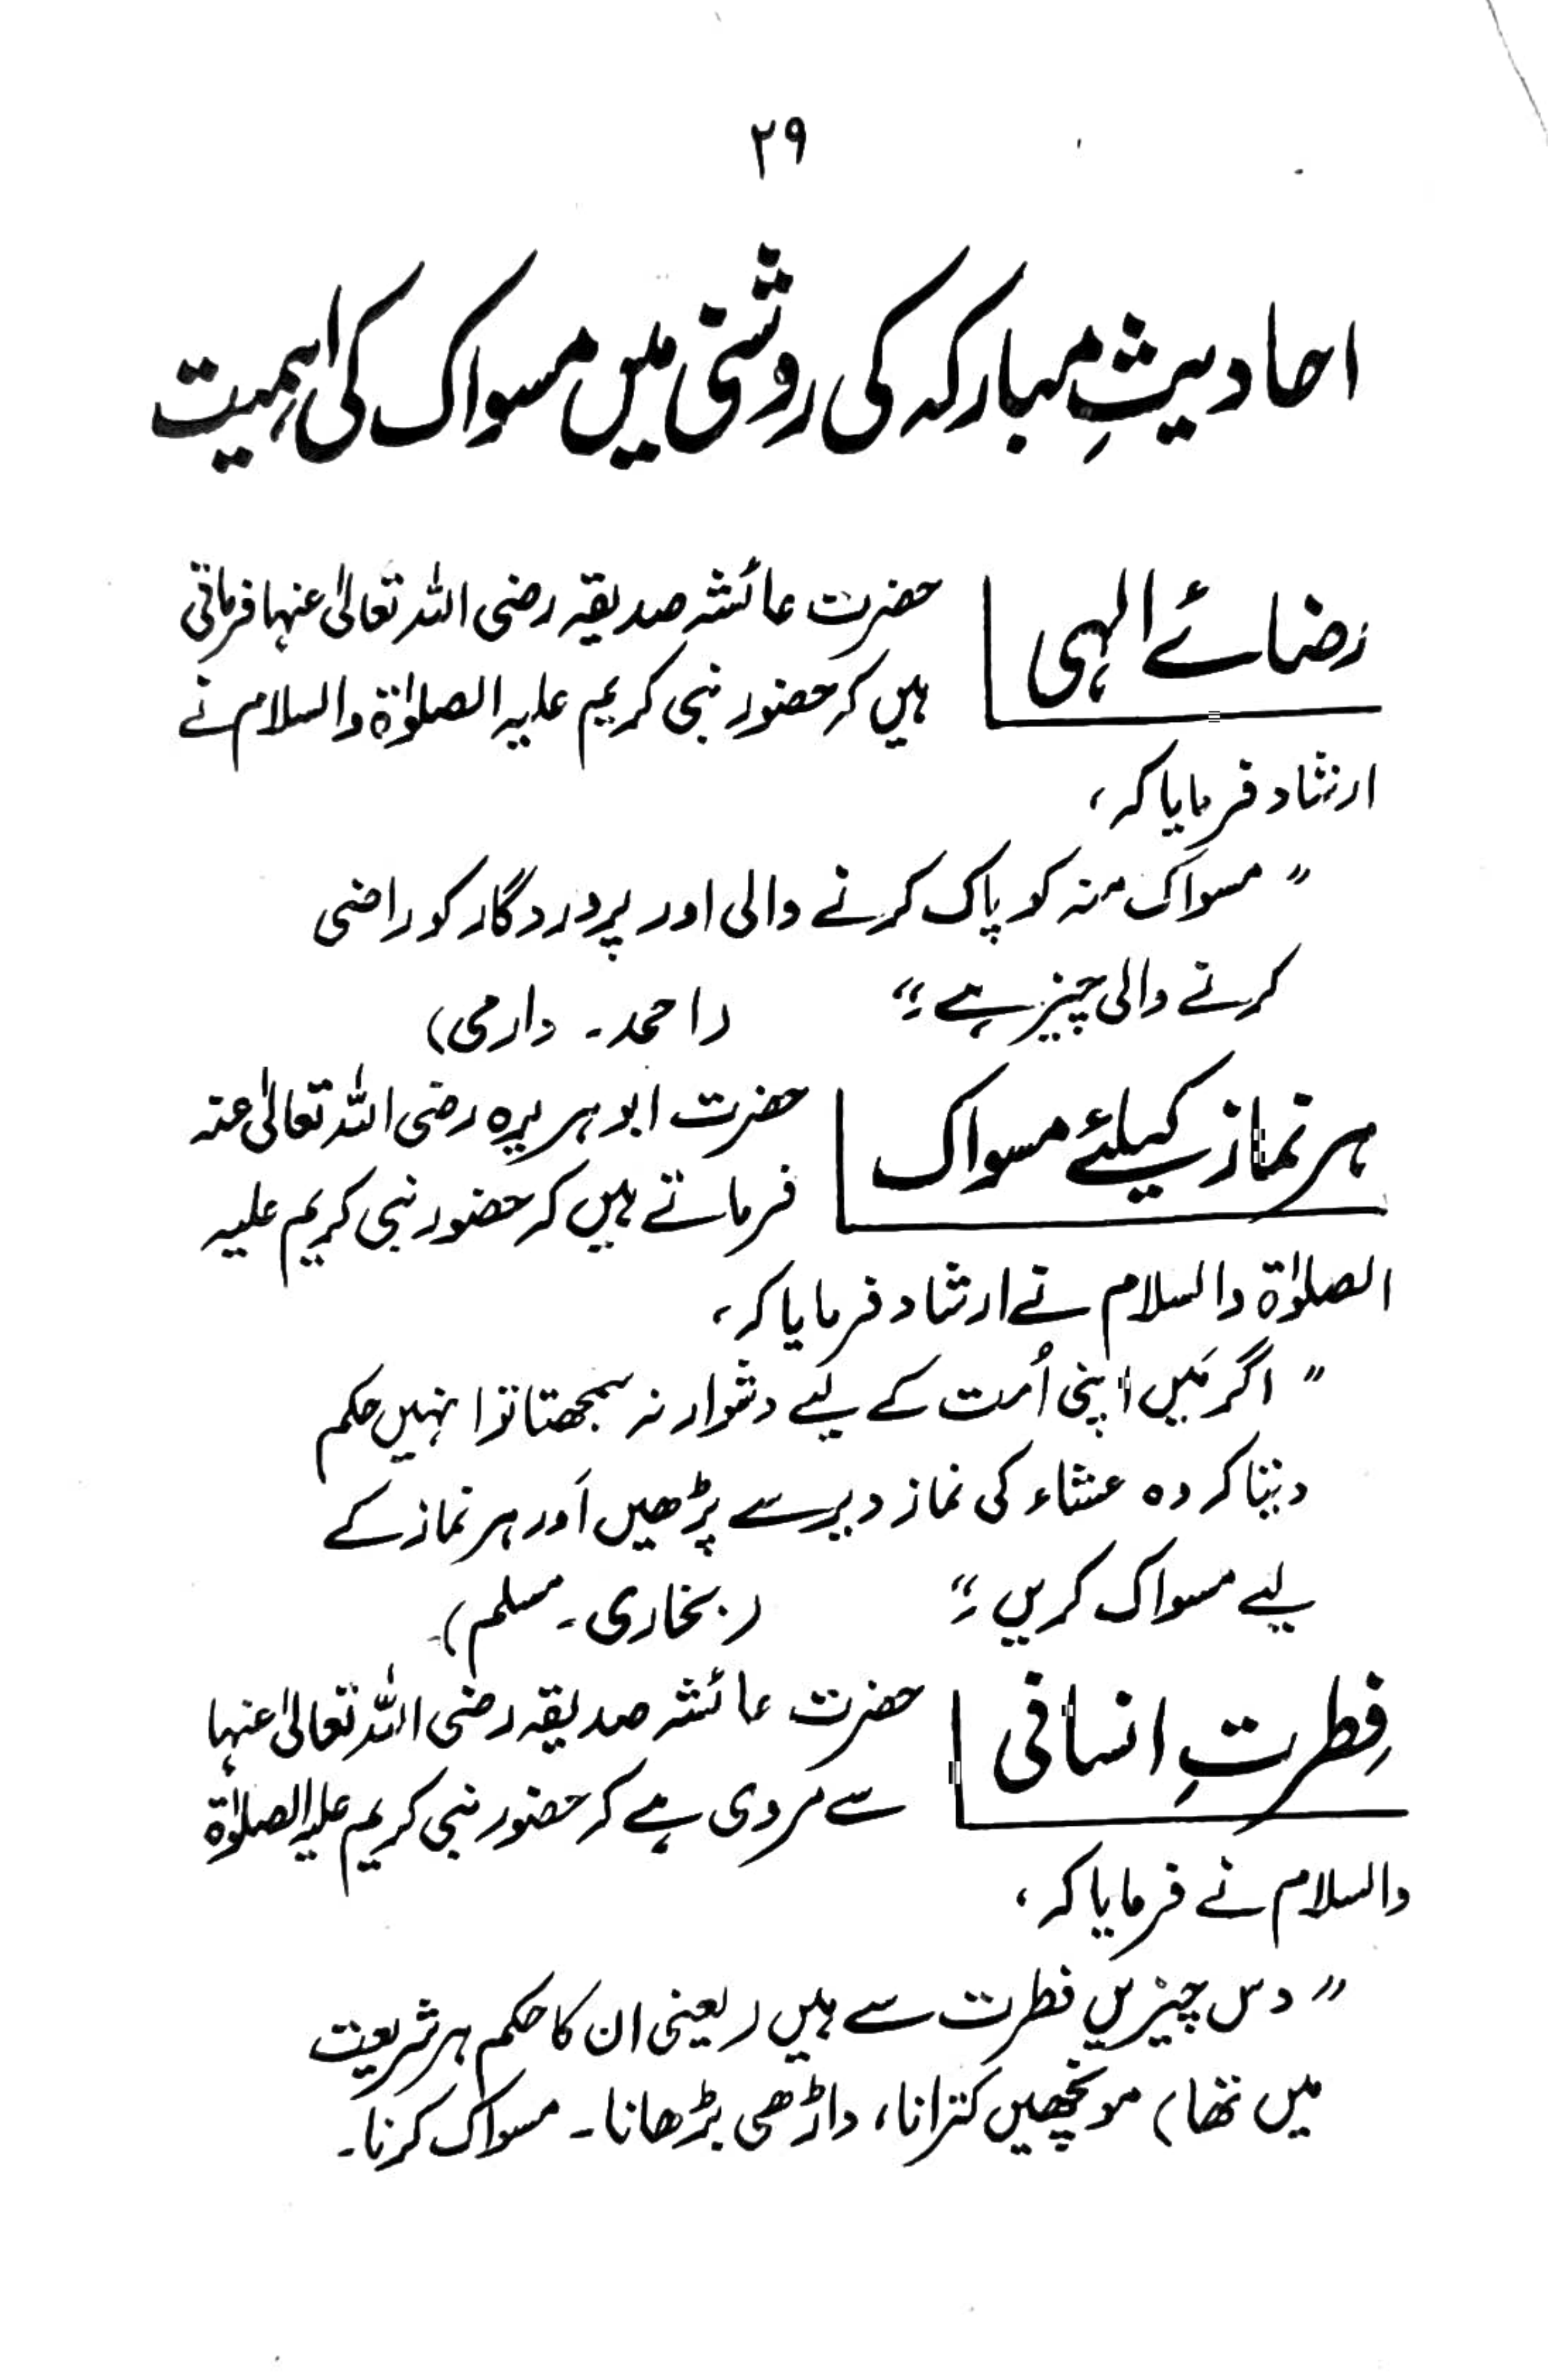 ۲۹
احادیثِ مبارکہ کی روشنی میں مسواک کی اہمیت
رضائے الٰہی
حضرت عائشہ صدیقہ رضی اللہ تعالیٰ عنہا فرماتی
ہیں کہ حضور نبی کریم علیہ الصلوٰۃ والسلام نے
ارشاد فرمایا کہ،
" مسواک منہ کو پاک کرنے والی اور پروردگار کو راضی
کرنے والی چیز ہے۔" (احمد۔ دارمی)
ہر نماز کیلئے مسواک
حضرت ابو ہریرہ رضی اللہ تعالیٰ عنہ
فرماتے ہیں کہ حضور نبی کریم علیہ
الصلوٰۃ والسلام نے ارشاد فرمایا کہ،
" اگر مَیں اپنی اُمت کے لیے دشوار نہ سمجھتا تو انہیں حکم
دیتا کہ وہ عشاء کی نماز دیر سے پڑھیں اَور ہر نماز کے
لیے مسواک کریں۔" (بخاری۔ مسلم)
فِطرتِ انسانی
حضرت عائشہ صدیقہ رضی اللہ تعالیٰ عنہا
سے مروی ہے کہ حضور نبی کریم علیہ الصلوٰۃ
والسلام نے فرمایا کہ،
" دس چیزیں فطرت سے ہیں (یعنی ان کا حکم ہر شریعت
میں تھا) مونچھیں کترانا، داڑھی بڑھانا۔ مسواک کرنا۔